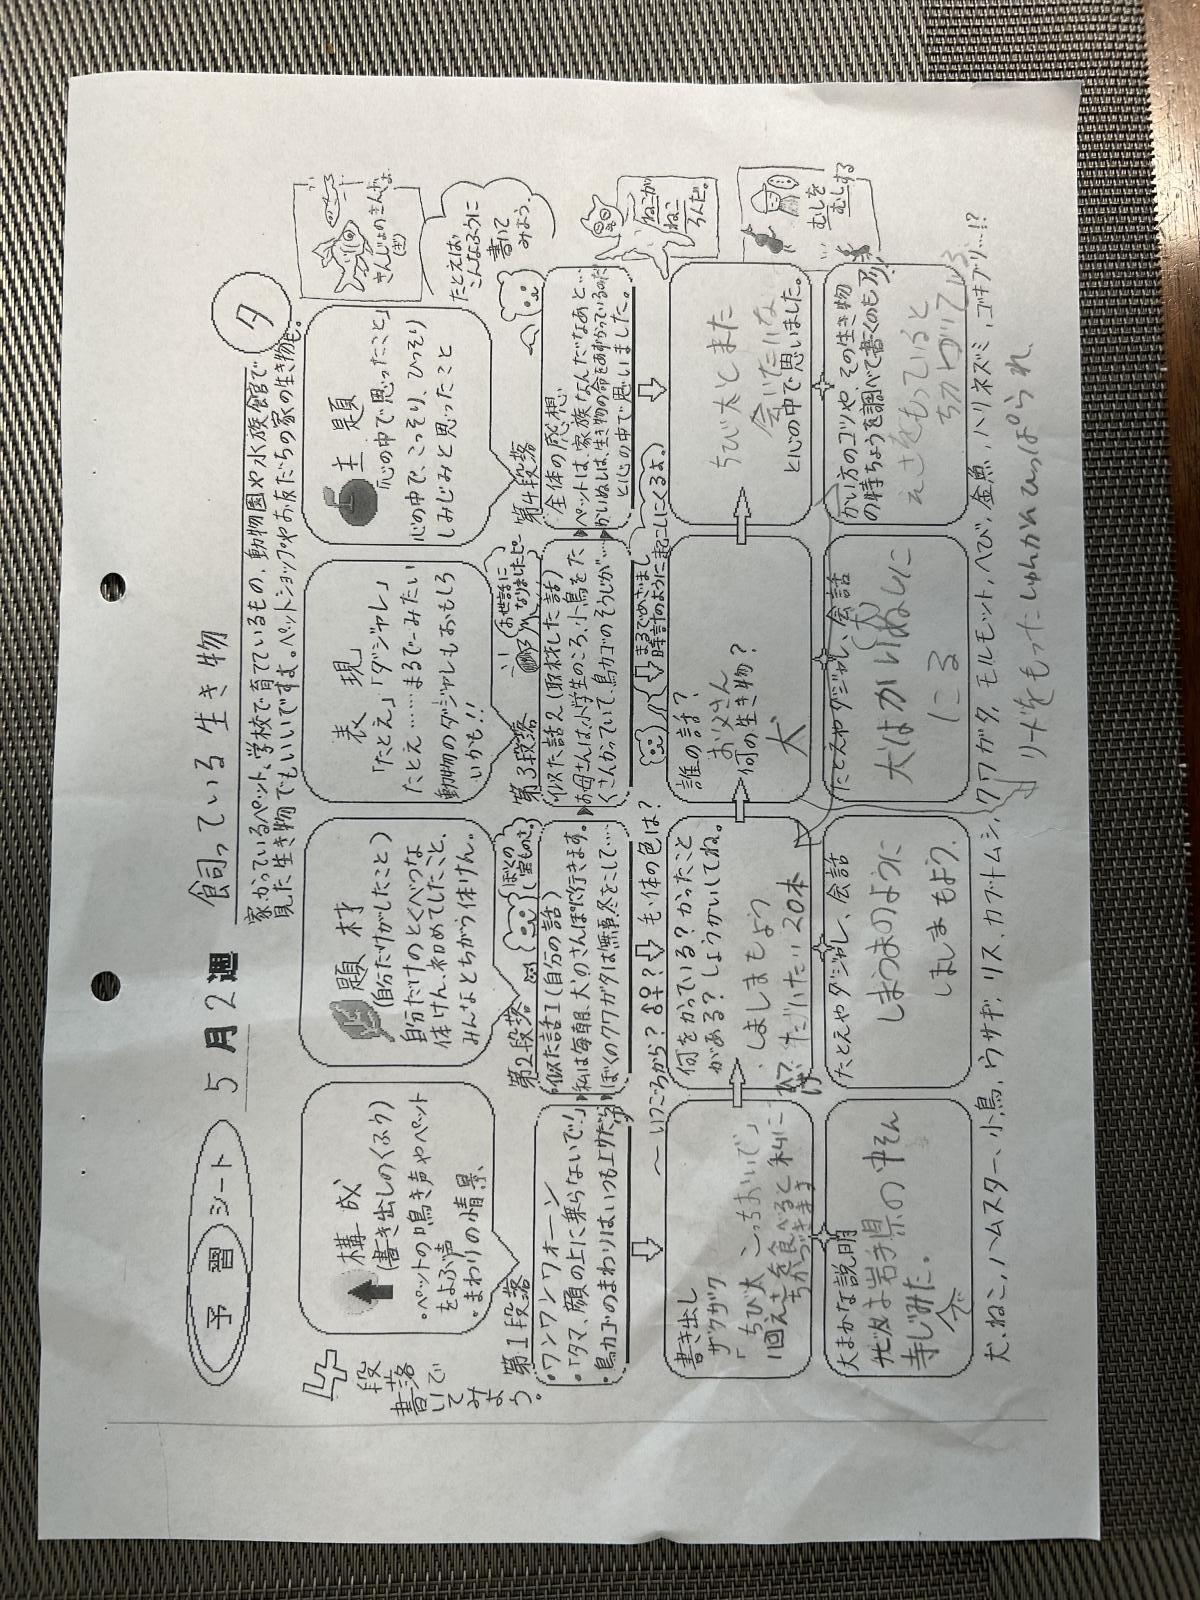 予習シート
5月2週
飼っている生き物
タ
家でかっているペット、学校で育てているもの、動物園や水族館で
見た生き物でもいいですよ。ペットショップやお友だちの家の生き物も。
4段落で書いてみよう。
構成
(書き出しのくふう)
・ペットの鳴き声やペットをよぶ声
・まわりの情景、
題材
(自分だけがしたこと)
自分だけのとくべつな
体けん、初めてしたこと、
みんなとちがう体けん。
表現
「たとえ」「ダジャレ」
たとえ……まるで〜みたい
動物のダジャレもおもしろ
いかも!!
主題
「心の中で思ったこと」
心の中で、こっそり、ひっそり
しみじみと思ったこと
さんじょのさんかよ
たとえば
こんなふうに
書いて
みよう。
第1段落
・ワンワンワォーン
・「タマ、顔の上に乗らないで!」
・鳥カゴのまわりはいつも
第2段落
ぼくの
宝もの
似た話1(自分の話)
私は毎朝、犬のさんぽに行きます。
ぼくのクワガタは無事冬をこして…
第3段落
お世話に
なりましたピー
似た話2(取材した話)
お母さんは、小学生のころ、小鳥をた
くさんかっていて、鳥カゴのそうじが…
第4段落
全体の感想
ペットは、家族なんだなあと…
かいぬしは、生き物の命をあずかっているのだ
と心の中で思いました。
ねこが
ねころんだ。
むしを
むしする
〜いつごろから? ♂♀? 毛・体の色は?
まるでめざまし
時計のように起こしにくるよ。
書き出し
ザクザク
「ちび太 こっちおいで」
1回えさを食べると 私に
ちかづきます
何をかっている?かったこと
がある?しょうかいしてね。
・しましまもよう
20本
誰の話?
お父さん
何の生き物?
犬
ちび太とまた
会いたいな
と心の中で思いました。
大まかな説明
岩手県の中そん
寺でみた。
たとえやダジャレ、会話
しまうまのように
しましまもよう。
たとえやダジャレ、会話
犬はかいぬしに
にる
かい方のコツや、その生き物
の特ちょうを調べて書くのも
えさをもっていると
ちかづいてくる
犬、ねこ、ハムスター、小鳥、ウサギ、リス、カブトムシ、クワガタ、モルモット、へび、金魚、ハリネズミ、ゴキブリ…!?
リードをもったしゅんかんひっぱられ